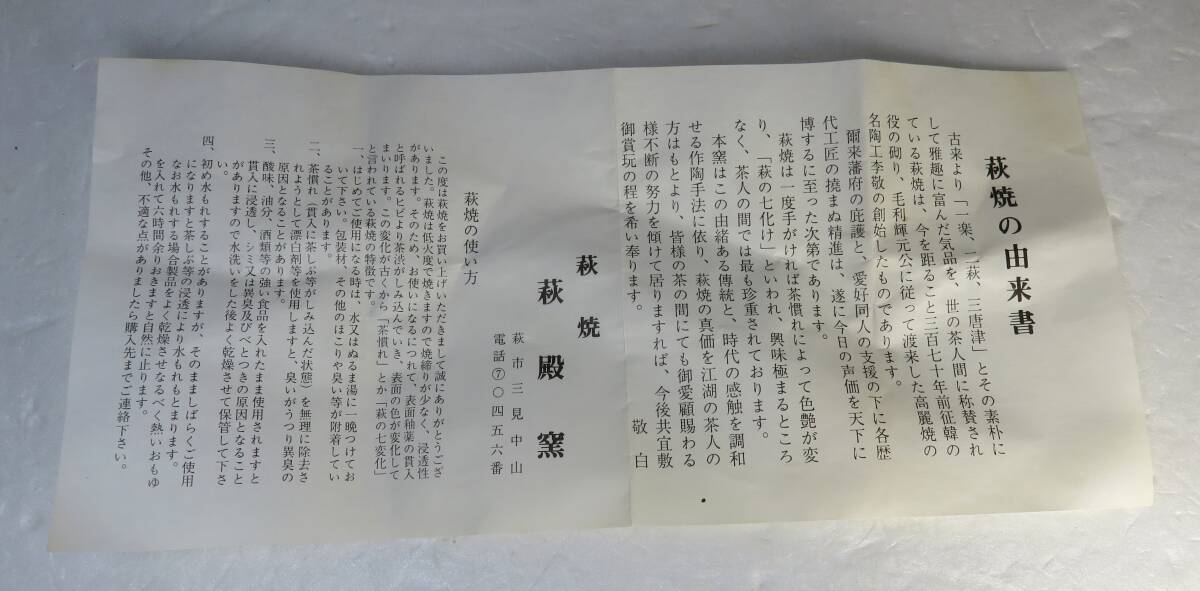 萩焼の由来書
古来より「一楽、二萩、三唐津」とその素朴に
して雅趣に富んだ気品を、世の茶人間に称賛され
ている萩焼は、今を距ること三百七十年前征韓の
役の砌り、毛利輝元公に従って渡来した高麗焼の
名陶工李敬の創始したものであります。
爾来藩府の庇護と、愛好同人の支援の下に各歴
代工匠の撓まぬ精進は、遂に今日の声価を天下に
博するに至った次第であります。
萩焼は一度手がければ茶慣れによって色艶が変
り、「萩の七化け」といわれ、興味極まるところ
なく、茶人の間では最も珍重されております。
本窯はこの由緒ある伝統と、時代の感触を調和
せる作陶手法に依り、萩焼の真価を江湖の茶人の
方はもとより、皆様の茶の間にても御愛顧賜わる
様不断の努力を傾けて居りますれば、今後共宜敷
御賞玩の程を希い奉ります。
敬白
萩焼
萩殿窯
萩市三見中山
電話⑦〇四五六番
萩焼の使い方
この度は萩焼をお買い上げいただきまして誠にありがとうござ
いました。萩焼は低火度で焼きますので焼締りが少なく、浸透性
があります。そのため、お使いになるにつれて、表面釉薬の貫入
と呼ばれるヒビより茶渋がしみ込んでいき、表面の色が変化して
まいります。この変化が古くから「茶慣れ」とか「萩の七変化」
と言われている萩焼の特徴です。
一、はじめてご使用になる時は、水又はぬるま湯に一晩つけてお
いて下さい。包装材、その他のほこりや臭い等が附着してい
ることがあります。
二、茶慣れ(貫入に茶しぶ等がしみ込んだ状態)を無理に除去さ
れようとして漂白剤等を使用しますと、臭いがうつり異臭の
原因となることがあります。
三、酸味、油分、酒類等の強い食品を入れたまま使用されますと
貫入に浸透し、シミ又は異臭及びべとつきの原因となること
がありますので水洗いをした後よく乾燥させて保管して下さ
い。
四、初め水もれすることがありますが、そのまましばらくご使用
になりますと茶しぶ等の浸透により水もれもとまります。
なお水もれする場合製品をよく乾燥させなるべく熱いおもゆ
を入れて六時間余りおきますと自然に止ります。
その他、不適な点がありましたら購入先までご連絡下さい。